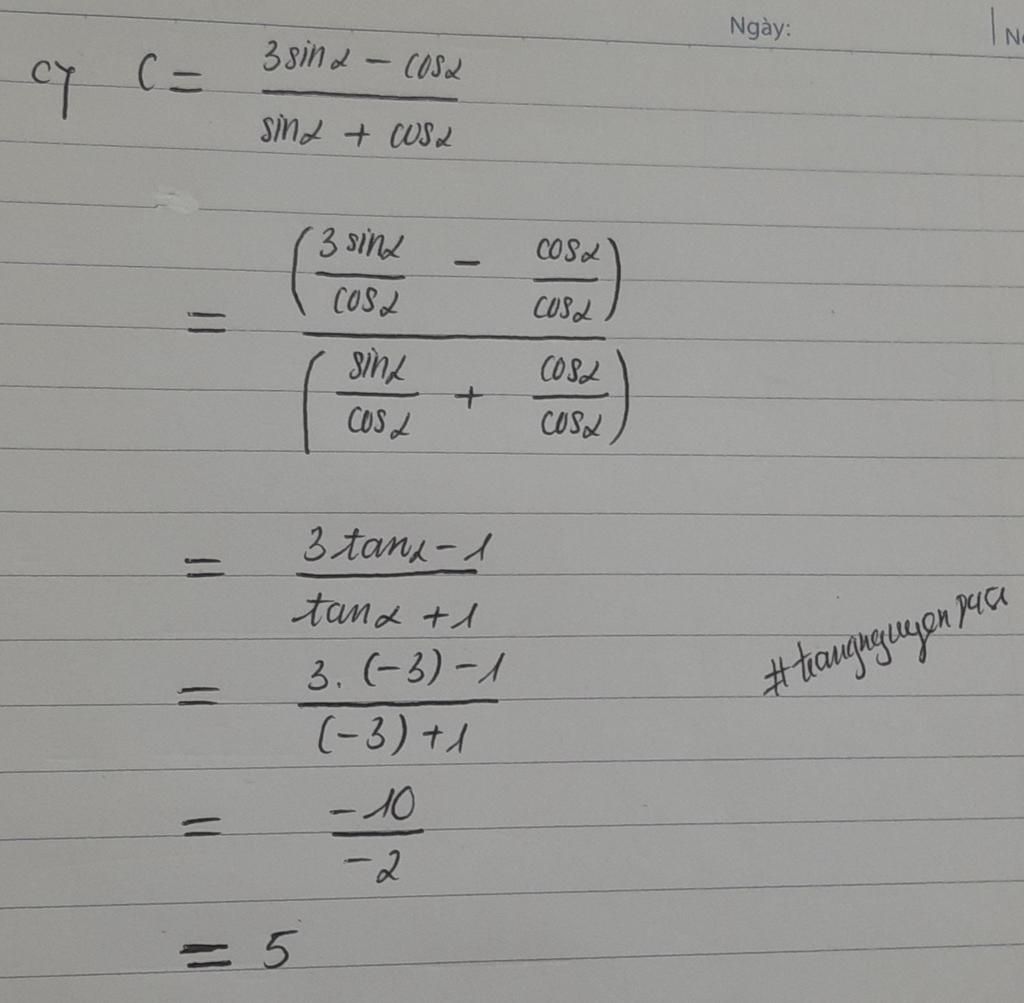 Ngày:
c) C = (3sinα - cosα) / (sinα + cosα)
= (3sinα/cosα - cosα/cosα) / (sinα/cosα + cosα/cosα)
= (3tanα - 1) / (tanα + 1)
= (3. (-3) - 1) / ((-3) + 1)
= -10 / -2
= 5